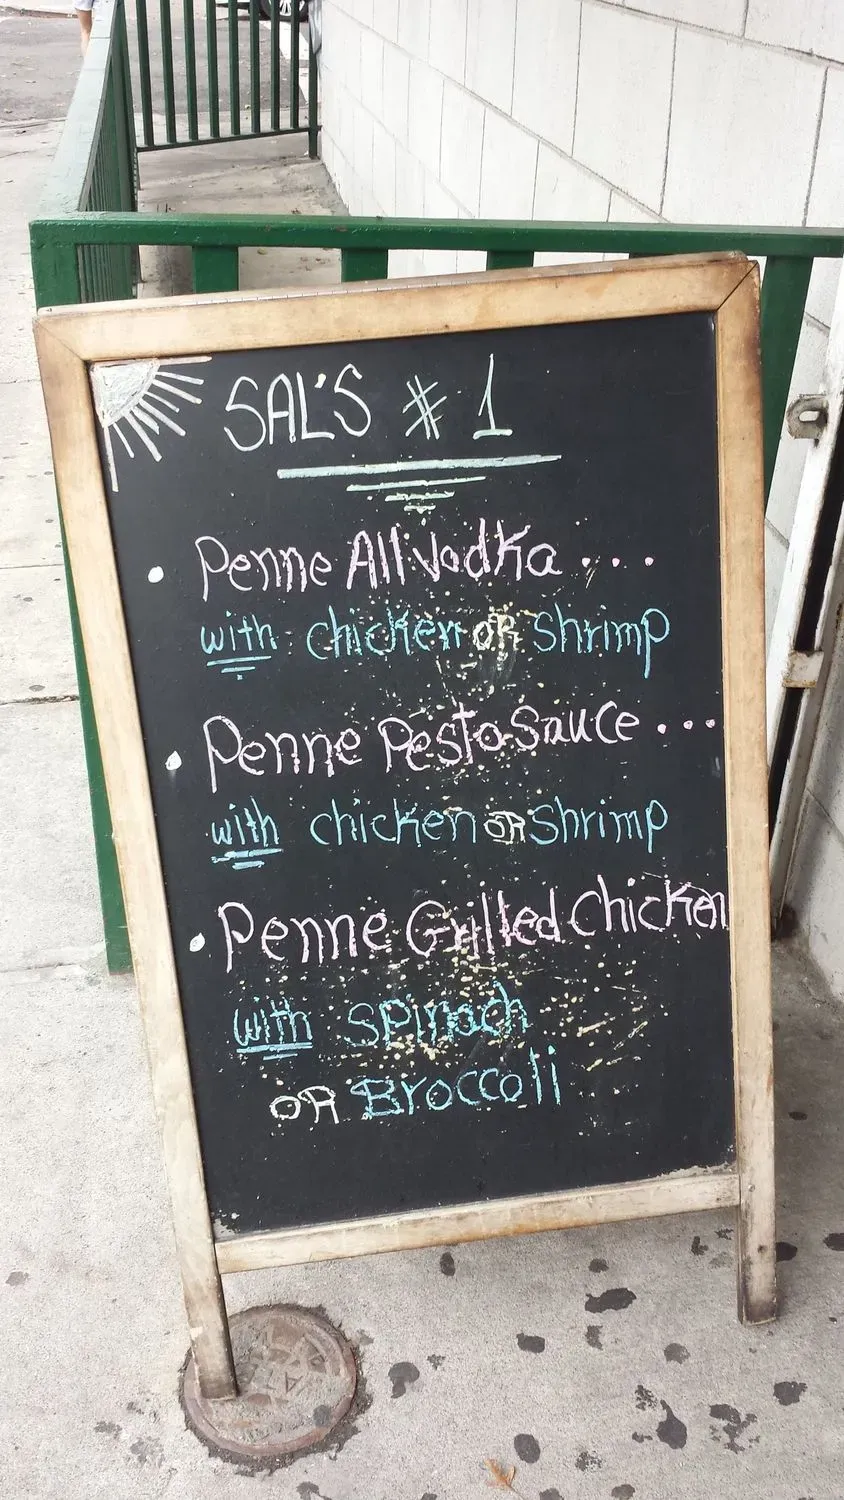 SAL'S # 1
• Penne All Vodka ...
with chicken OR Shrimp
• Penne Pesto Sauce ...
with chicken OR Shrimp
• Penne Grilled Chicken
with Spinach
OR Broccoli